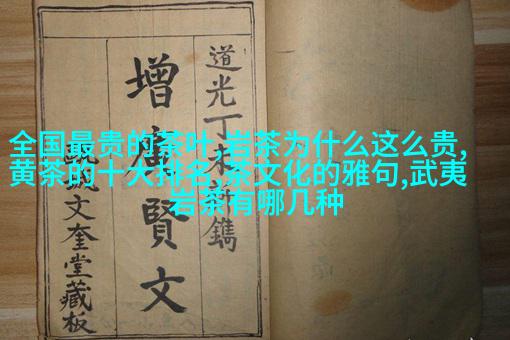 全国最贵的茶叶,岩茶为什么这么贵,
黄茶的十大排名,茶文化的雅句,武夷
岩茶有哪几种
道光丁未新鐫
增廣賢文
文奎堂藏板